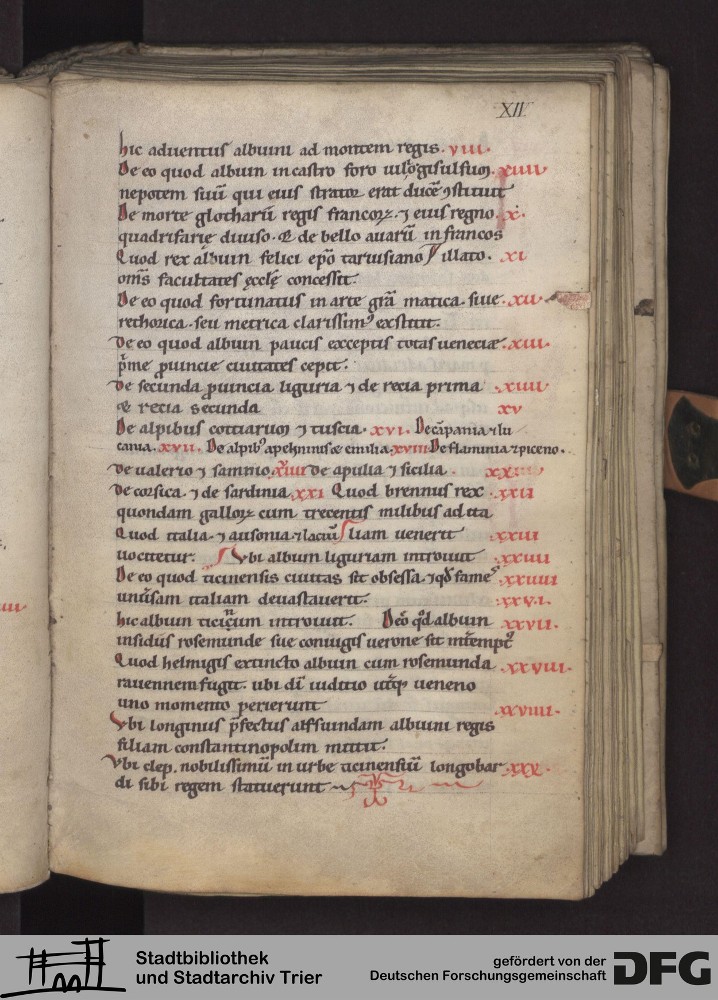 XII
hic aduentus albuini ad montem regis. viii.
De eo quod albuin in castro foro iuli gisulfum. 
nepotem suū qui eius strator erat ducē ꝯstituit
De morte glotharii regis francoꝝ. ⁊ eius regno. x.
quadrifarie diuiso. & de bello auarū in francos
Quod rex albuin felici ep̄o taruisiano illato. xi
om̄s facultates ęcclę concessit.
De eo quod fortunatus in arte grā matica. siue. xii.
rethorica. seu metrica clarissimꝰ exstitit.
De eo quod albuin paucis exceptis totas ueneciae. xiii.
ꝓuincie ciuitates cepit.
De secunda ꝓuincia liguria ⁊ de recia prima xiiii
& recia secunda xv
De alpibus cottiarum ⁊ tuscia. xvi. De cāpania ⁊ lu
cania. xvii. De alpibꝰ apenninis & emilia. xviii De flaminia ⁊ piceno.
De ualerio ⁊ samnio. De apulia ⁊ sicilia.
De corsica. ⁊ de sardinia. xxi. Quod brennus rex. xxii
quondam galloꝝ cum trecentis milibus ad ita
Quod italia. ⁊ ausonia. ⁊ laciū liam uenerit xxiii
uocitetur. Vbi albuin liguriam introiuit xxiiii
De eo quod ticinensis ciuitas sit obsessa. ⁊ qd̄ fames xxiiiii
uniūsam italiam deuastauerit. xxvi.
hic albuin ticinum introiuit. De eo qd̄ albuin xxvii.
insidiis rosemunde sue coniugis uerone sit
Quod helmigis extincto albuin cum rosemunda xxviii.
rauennem fugit. ubi dī iuditio ueneno
uno momento perierunt xxviiii.
Vbi longinus p̄fectus alfsuindam albuini regis
filiam constantinopolim mittit.
Vbi clep. nobilissimū in urbe ticinensiū longobar xxx.
di sibi regem statuerunt
Stadtbibliothek
und Stadtarchiv Trier
gefördert von der
Deutschen Forschungsgemeinschaft
DFG